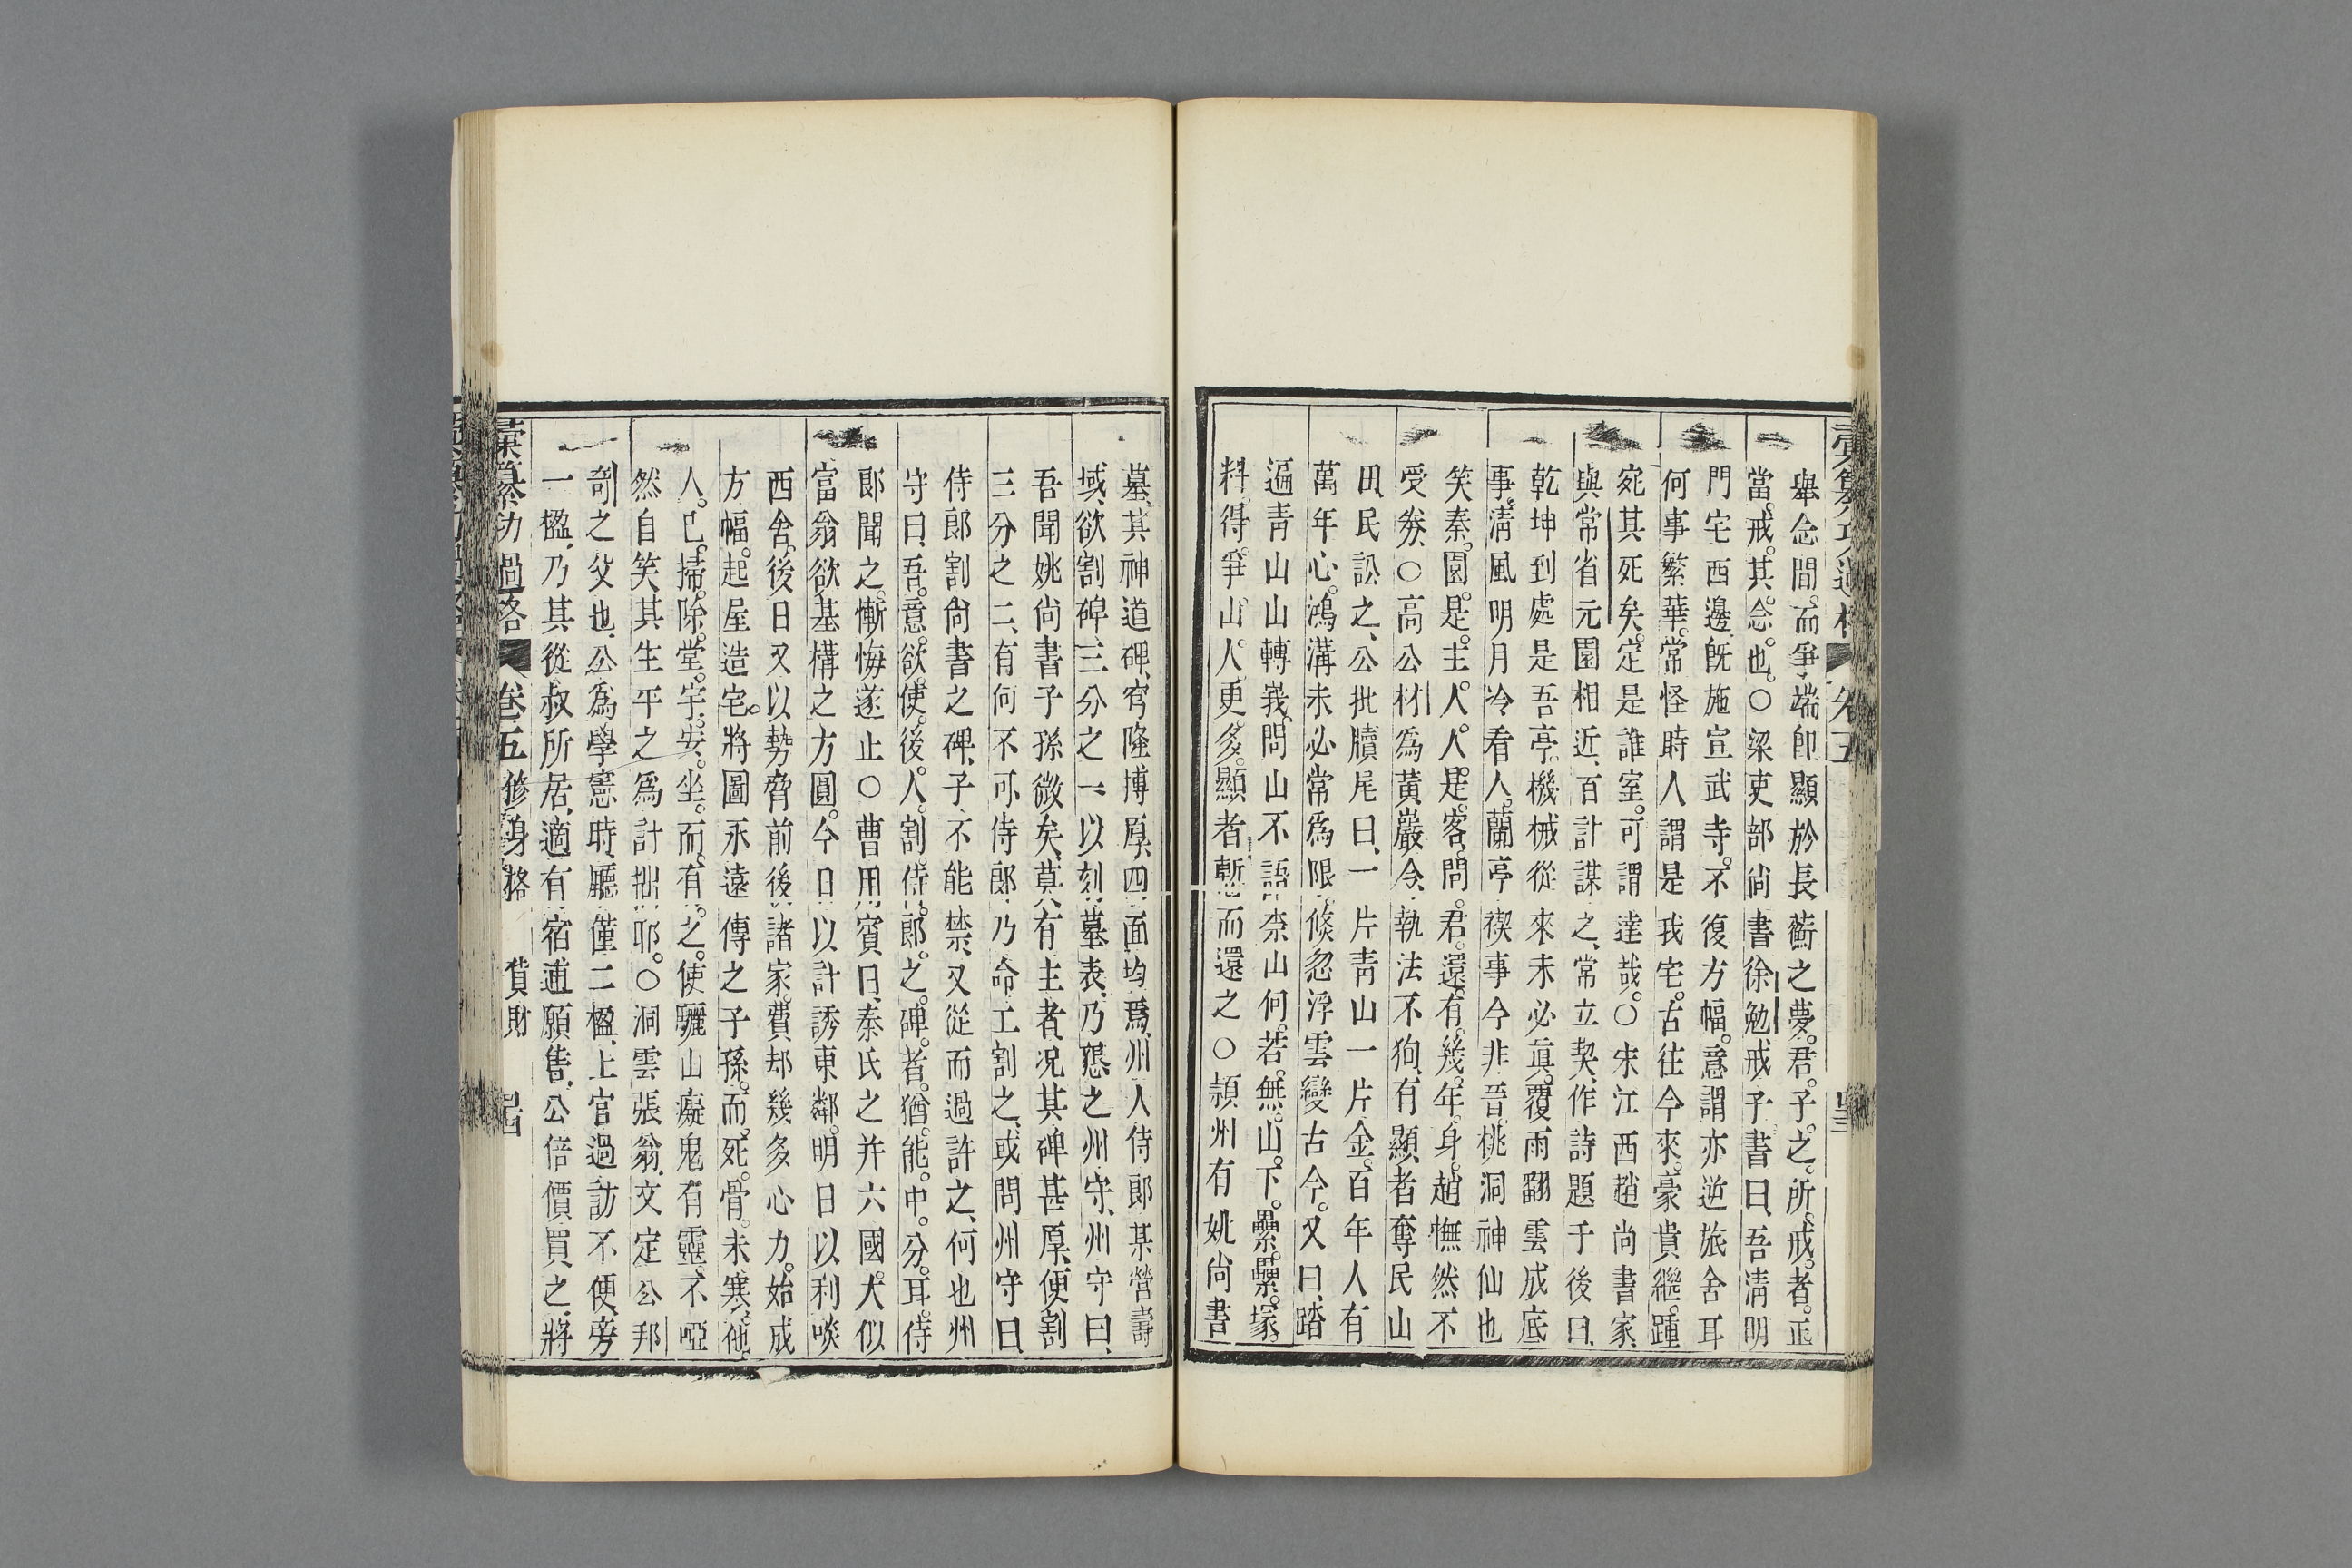 彙纂功過格 卷五
舉念間。而爭端卽顯於長蘅之夢。君子之所戒者。正
當戒其念也。○梁吏部尙書徐勉、戒子書曰、吾淸明
門宅西邊、旣施宣武寺。不復方幅。意謂亦逆旅舍耳
何事繁華。常怪時人謂是我宅。古往今來。豪貴繼踵
宛其死矣。定是誰室。可謂達哉。○宋江西趙尙書家
與常省元園相近、百計謀之、常立契、作詩題于後曰、
乾坤到處是吾亭。機械從來未必眞。覆雨翻雲成底
事。淸風明月冷看人。蘭亭禊事今非晉、桃洞神仙也
笑秦。園是主人。人是客。問君還有幾年身。趙憮然不
受劵、○高公材爲黃巖令、執法不狥、有顯者奪民山
田、民訟之、公批牘尾曰、一片靑山一片金。百年人有
萬年心。鴻溝未必常爲限。倐忽浮雲變古今。又曰、踏
遍靑山山轉峩。問山不語柰山何。若無山下纍纍塚。
料得爭山人更多。顯者慙而還之○頴州有姚尙書
墓、其神道碑、穹隆博厚、四面均焉、州人侍郞某營壽
域、欲割碑三分之一以刻墓表、乃懇之州守、州守曰、
吾聞姚尙書子孫微矣、莫有主者、况其碑甚厚、便割
三分之二、有何不可、侍郞乃命工割之、或問州守曰、
侍郞割尙書之碑、子不能禁、又從而過許之、何也州
守曰、吾意欲使後人割侍郞之碑者。猶能中分耳。侍
郞聞之。慚悔遂止○曹用賓曰、秦氏之并六國。大似
富翁欲基構之方圓。今日以計誘東鄰。明日以利啖
西舍。後日又以勢脅前後諸家。費却幾多心力。始成
方幅。起屋造宅。將圖永遠傳之子孫。而死骨未寒。他
人已掃除堂宇。安坐而有之。使驪山癡鬼有靈。不啞
然自笑其生平之爲計拙耶。○洞雲張翁、文定公邦
奇之父也、公爲學憲時、廳僅二楹、上官過訪不便、旁
一楹、乃其從叔所居、適有宿逋願售、公倍價買之、將
彙纂功過格 卷五 修身格 貨財